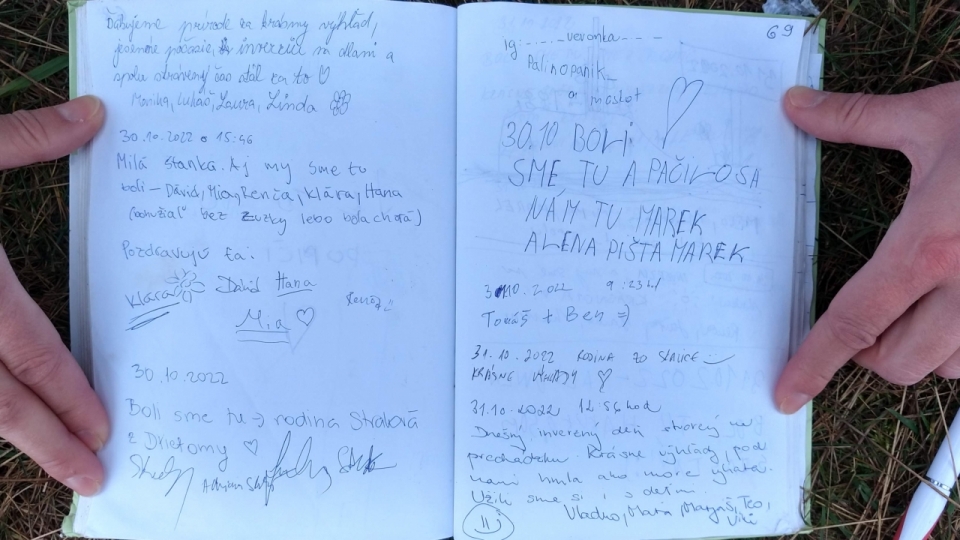 Ďakujeme prírode za krásny výhľad,
jesenné počasie, inverziu na dlani a
spolu strávený čas stál za to ♡
Monika, Lukáš, Laura, Linda
30.10.2022 o 15:46
Milá Stanka. Aj my sme tu
boli - Dávid, Mia, Renča, Klára, Hana
(bohužiaľ bez Zuzky lebo bola chorá)
Pozdravujú ťa:
Klára Dávid Hana
Mia ♡
30.10.2022
Boli sme tu :) rodina
z Drietomy ♡
Adrian
69
ig: _._._veronka_._._
Palinopanik_
a maslot
30.10 BOLI
SME TU A PAČILO SA
NÁM TU MAREK
ALENA PIŠTA MAREK
31.10.2022 9:23 h
Tomáš + Ben =)
31.10.2022 RODINA ZO SKALICE
KRÁSNE VÝHĽADY ♡
31.10.2022 12.56 hod
Dnešný inverzný deň stvorený na
prechádzku. Krásne výhľady, pod
nami hmla ako more vyzerá.
Užili sme si i s deťmi.
Vladko, Mária, Teo,